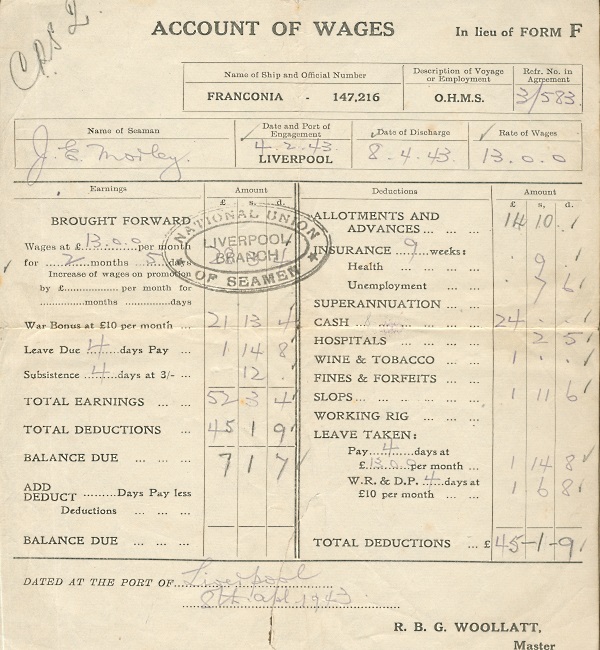 C.R.S 2.
ACCOUNT OF WAGES In lieu of FORM F
Name of Ship and Official Number Description of Voyage or Employment Refr. No. in Agreement
FRANCONIA - 147,216 O.H.M.S. 3/583
Name of Seaman Date and Port of Engagement Date of Discharge Rate of Wages
J. E. Morley. 4.2.43. LIVERPOOL 8.4.43. 13.0.0
Earnings Amount
£ s. d.
BROUGHT FORWARD
Wages at £ 13.0.0 per month
for 2 months 5 days
Increase of wages on promotion
by £ per month for
months days
War Bonus at £10 per month 21 13 4
Leave Due 4 days Pay 1 14 8
Subsistence 4 days at 3/- 12 .
TOTAL EARNINGS 52 3 4
TOTAL DEDUCTIONS 45 1 9
BALANCE DUE 7 1 7
ADD
DEDUCT Days Pay less
Deductions
BALANCE DUE
NATIONAL UNION
LIVERPOOL
BRANCH
OF SEAMEN
Deductions Amount
£ s. d.
ALLOTMENTS AND
ADVANCES 14 10 .
INSURANCE 9 weeks:
Health 9 .
Unemployment 7 6
SUPERANNUATION
CASH 24 . .
HOSPITALS 2 5
WINE & TOBACCO 1 . .
FINES & FORFEITS
SLOPS 1 11 6
WORKING RIG
LEAVE TAKEN:
Pay 4 days at
£ 13.0.0 per month 1 14 8
W.R. & D.P. 4 days at
£10 per month 1 6 8
TOTAL DEDUCTIONS £ 45-1-9
DATED AT THE PORT OF Liverpool
8th Apl 1943
R. B. G. WOOLLATT,
Master